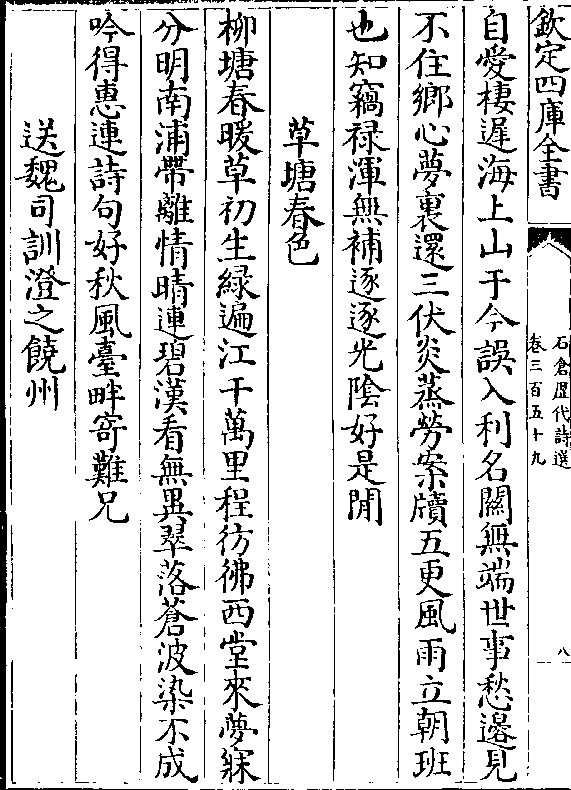 欽定四庫全書
石倉歷代詩選
卷三百五十九
八
自愛棲遲海上山于今誤入利名關無端世事愁邊見
不住鄉心夢裏還三伏炎蒸勞案牘五更風雨立朝班
也知竊祿渾無補逐逐光陰好是閒
草塘春色
柳塘春暖草初生緑遍江干萬里程彷彿西堂來夢寐
分明南浦帶離情晴連碧漢看無異翠落蒼波染不成
吟得惠連詩句好秋風臺畔寄難兄
送魏司訓澄之饒州